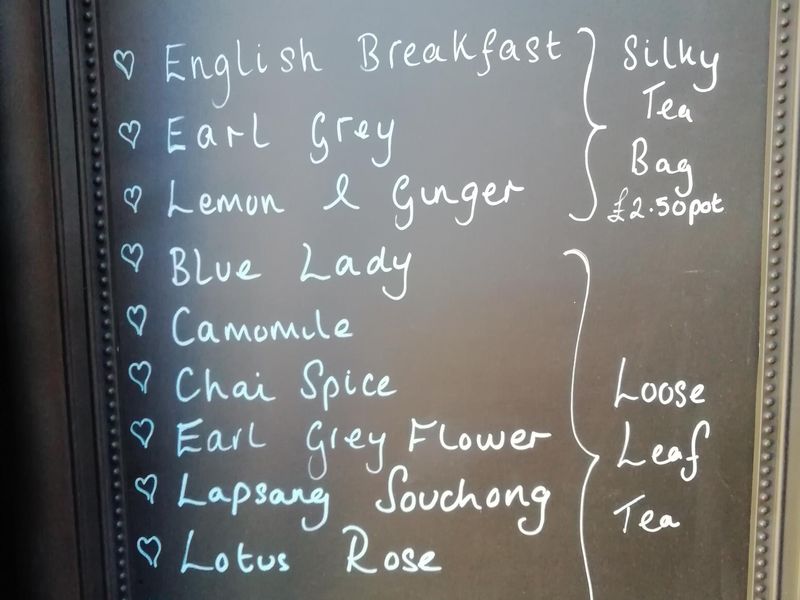 English Breakfast
Earl Grey
Lemon & Ginger
Silky
Tea
Bag
£2.50pot
Blue Lady
Camomile
Chai Spice
Earl Grey Flower
Lapsang Souchong
Lotus Rose
Loose
Leaf
Tea